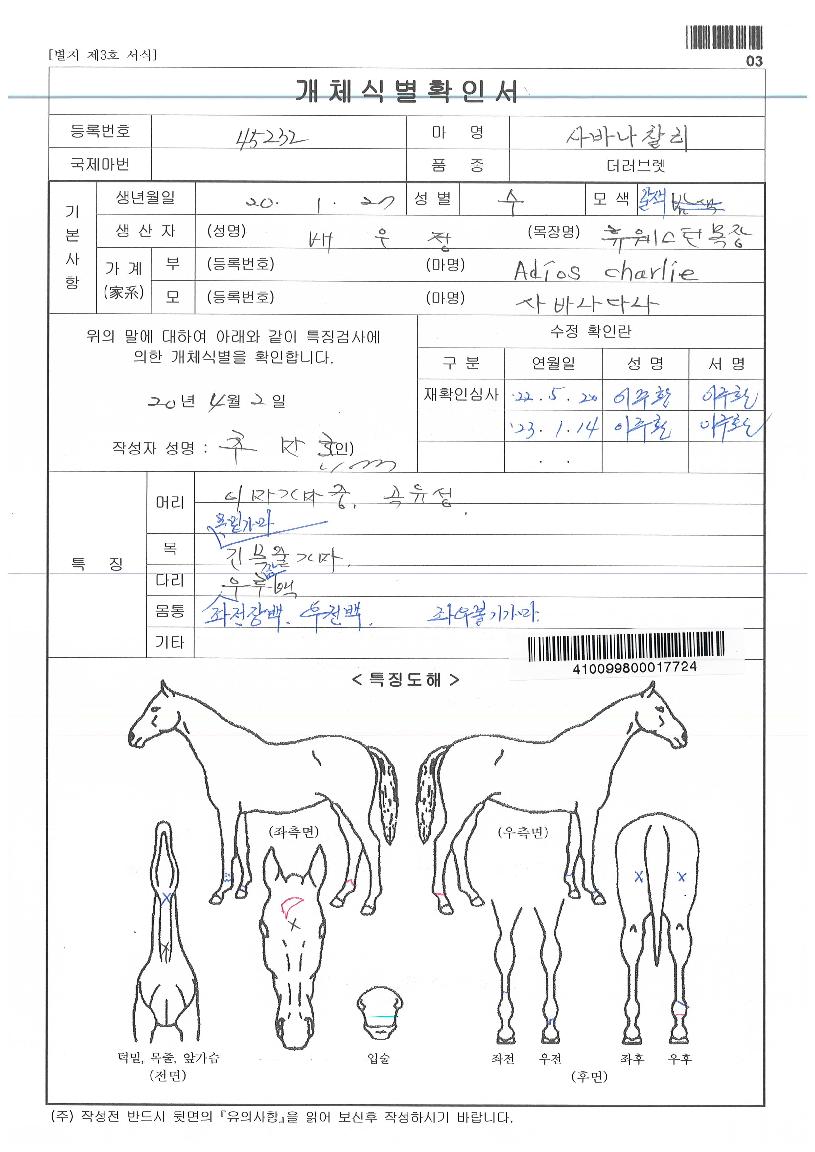 [별지 제3호 서식]
03
개체식별확인서
등록번호 45232 마 명 사바나찰리
국제마번 품 종 더러브렛
기본사항
생년월일 20. 1. 27 성별 수 모색 갈색
생 산 자 (성명) 배 우 장 (목장명) 휴웨스턴목장
가계 (家系) 부 (등록번호) (마명) Adios charlie
모 (등록번호) (마명)
위의 말에 대하여 아래와 같이 특징검사에
의한 개체식별을 확인합니다.
20년 4월 2일
작성자 성명 : (인)
수정 확인란
구 분 연월일 성 명 서 명
재확인심사 '22. 5. 20 이주환 이주환
'23. 1. 14 이주환 이주환
. .
특 징
머리 이마가마중, 곡유성.
목 긴목줄가마.
다리
몸통 좌전장백. 우전백. 좌우볼기가마.
기타
410099800017724
< 특징도해 >
(좌측면) (우측면)
턱밑, 목줄, 앞가슴 입술 좌전 우전 좌후 우후
(전면) (후면)
(주) 작성전 반드시 뒷면의 『유의사항』을 읽어 보신후 작성하시기 바랍니다.